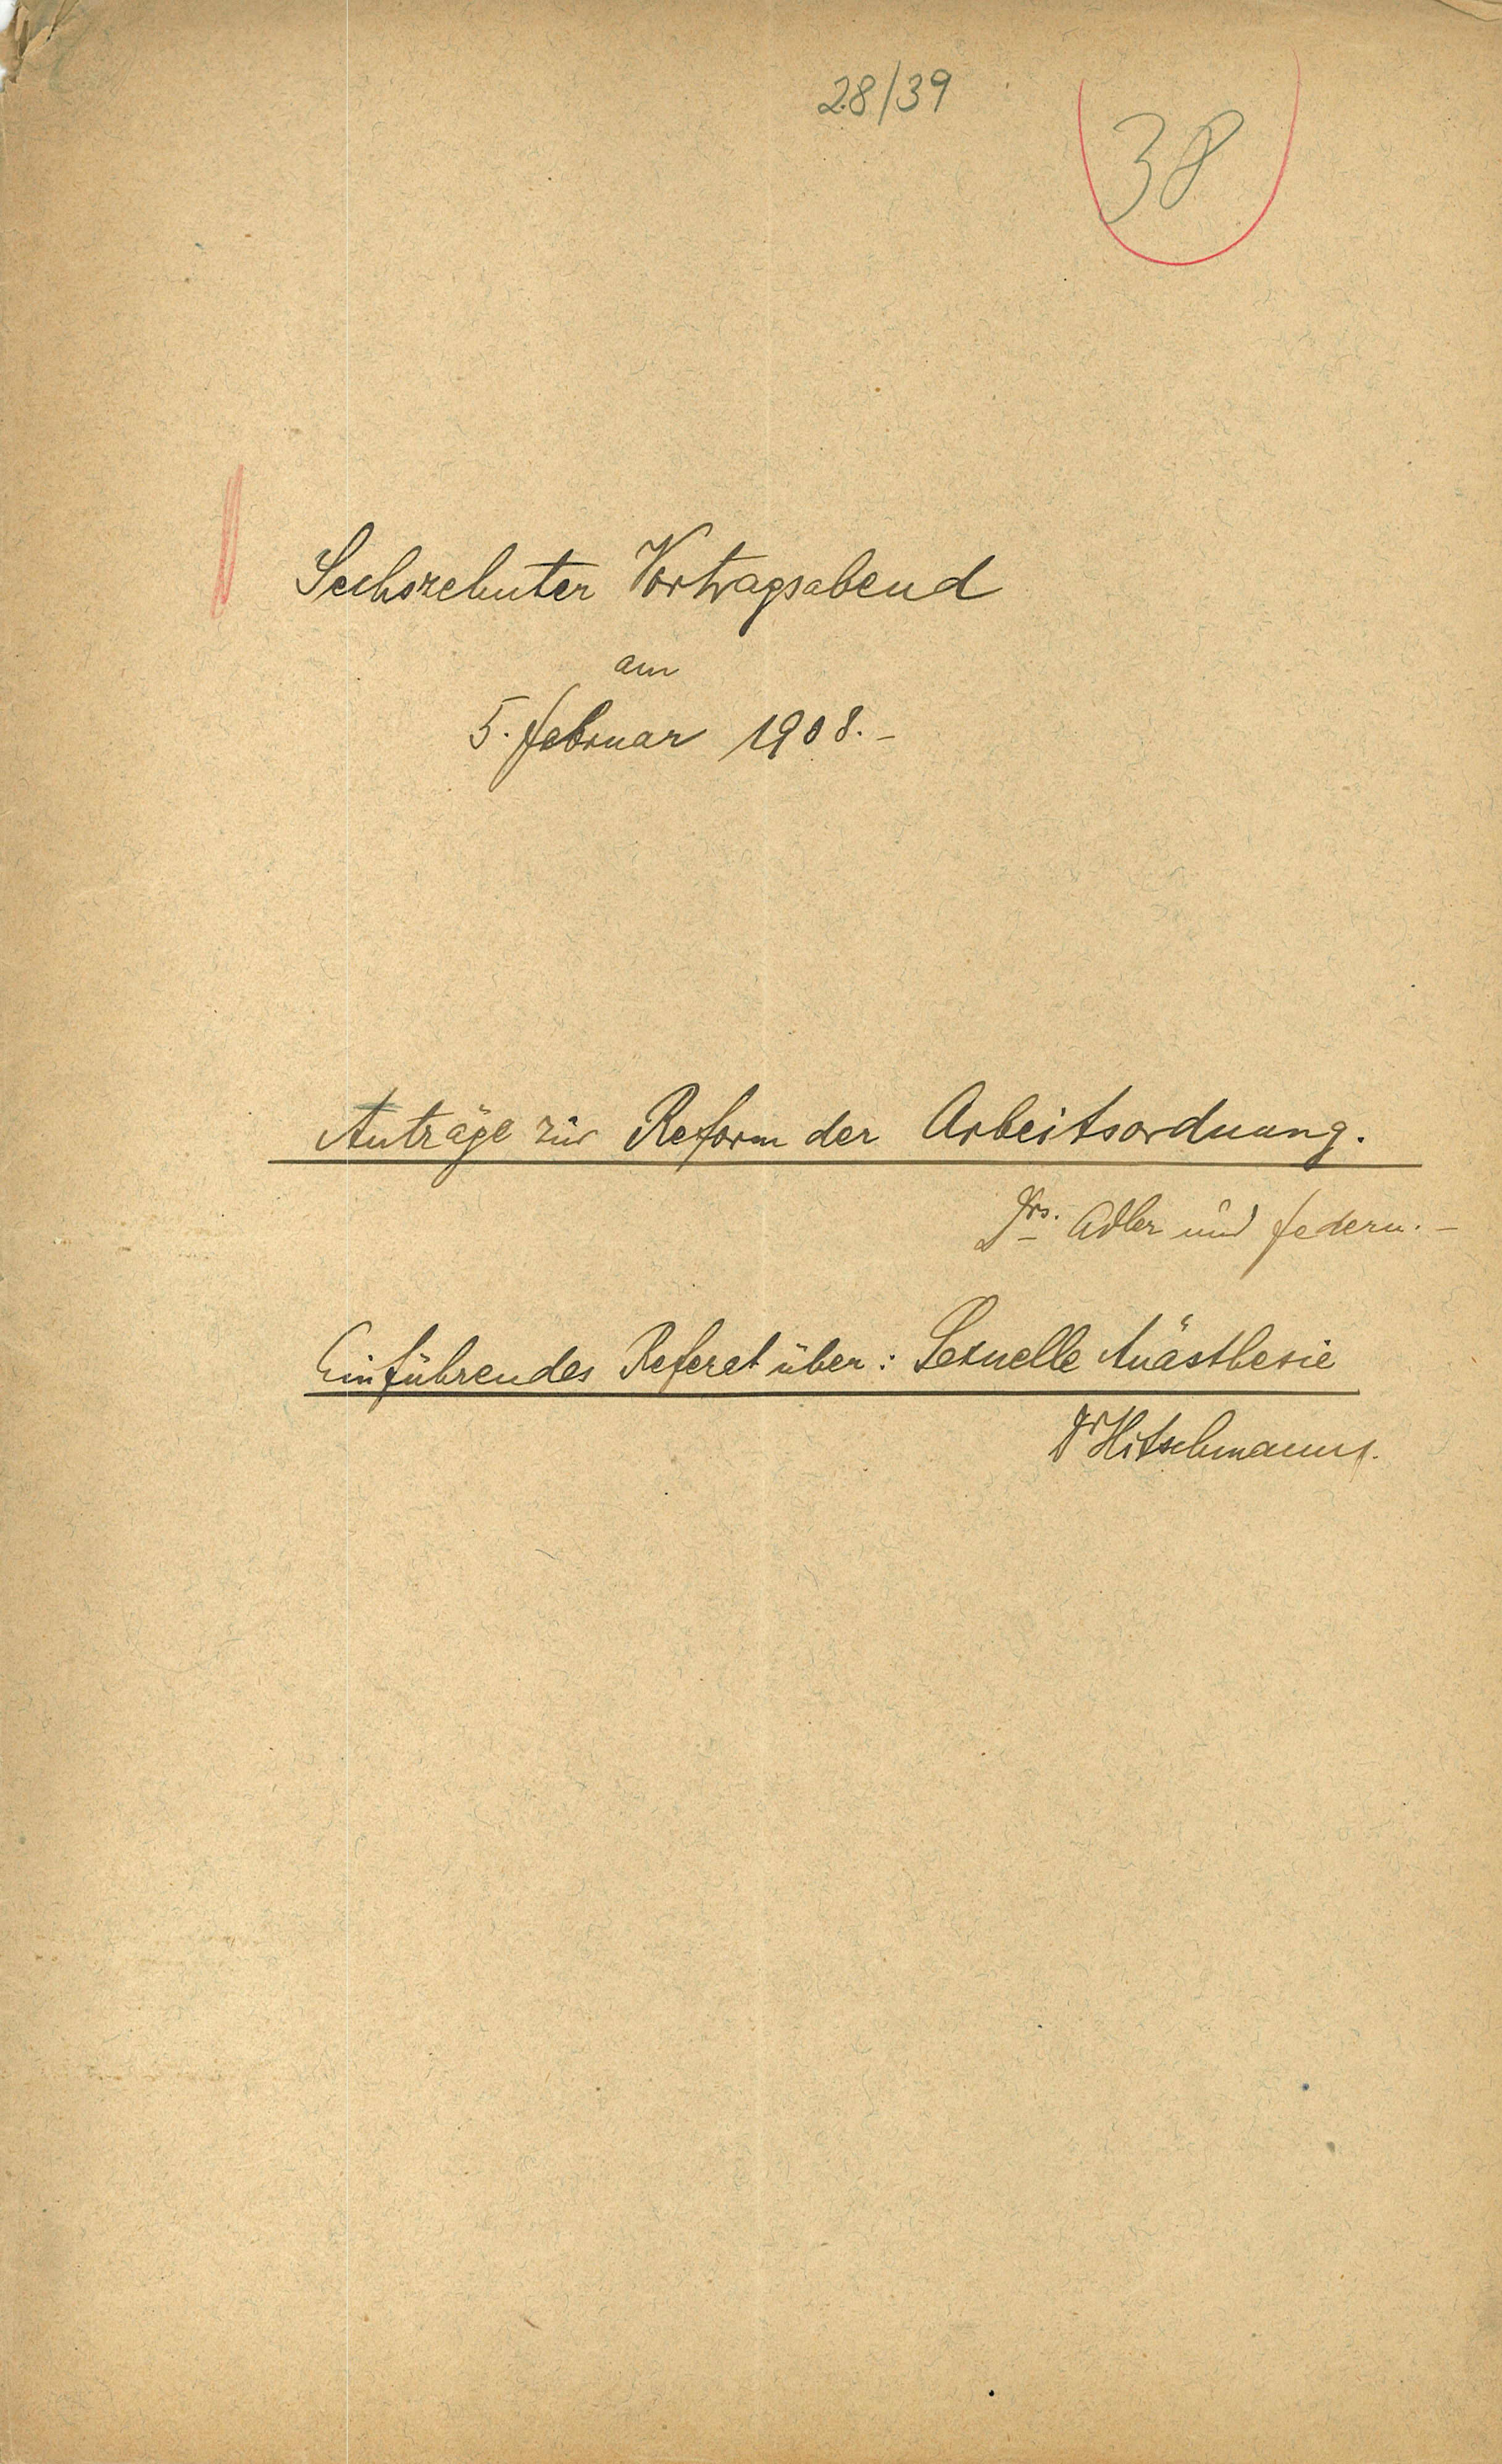 28/39
38
Sechszehnter Vortragsabend
am
5. Februar 1908. –
Anträge zur Reform der Arbeitsordnung.
Drs. Adler und Federn. –
Einführendes Referat über: Sexuelle Anästhesie
Dr Hitschmann.